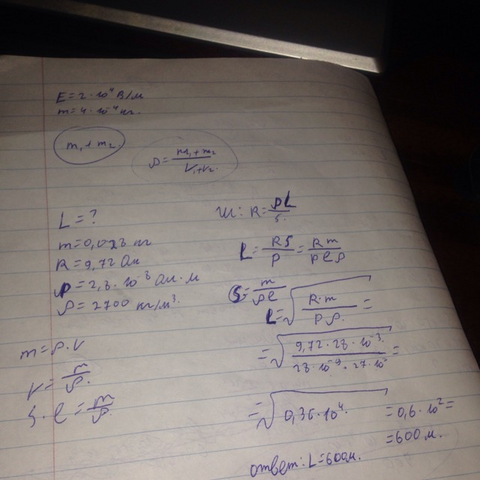 E = 2·10⁴ В/м
m = 4·10⁻⁴ кг.
m₁ + m₂
ρ = (m₁+m₂)/(V₁+V₂)
L = ?
m = 0,028 кг
R = 9,72 Ом
ρ = 2,8·10⁻⁸ Ом·м
ρ = 2700 кг/м³.
m = ρ·V
V = m/ρ.
S·l = m/ρ.
R = ρL/S.
L = RS/ρ = Rm/(ρlρ)
S = m/(ρl)
L = √(R·m/(ρ·ρ.)) =
= √(9,72·28·10⁻³/(28·10⁻⁹·27·10²)) =
= √(0,36·10⁴.) = 0,6·10² =
= 600 м.
ответ: L = 600 м.